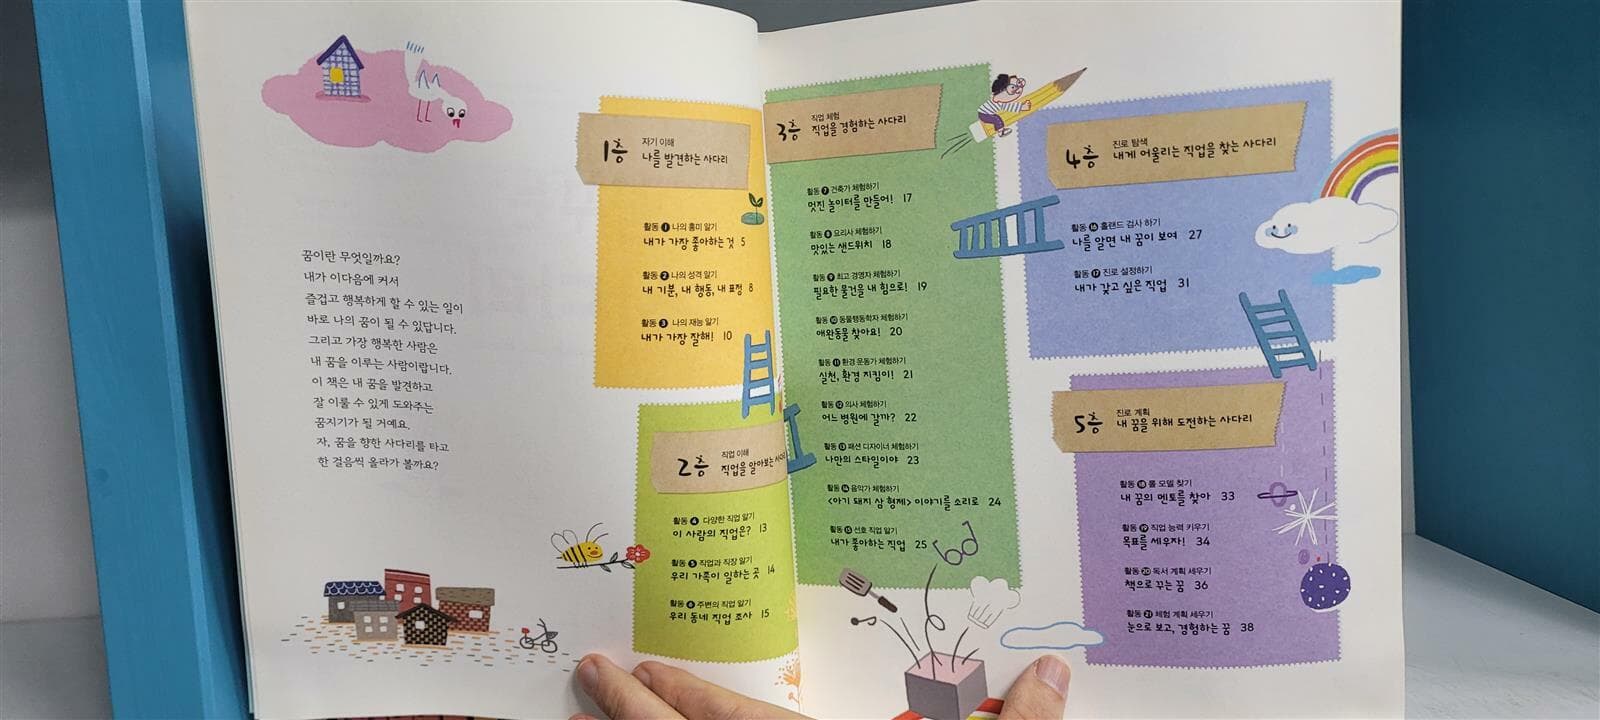 꿈이란 무엇일까요?
내가 이다음에 커서
즐겁고 행복하게 할 수 있는 일이
바로 나의 꿈이 될 수 있답니다.
그리고 가장 행복한 사람은
내 꿈을 이루는 사람이랍니다.
이 책은 내 꿈을 발견하고
잘 이룰 수 있게 도와주는
꿈지기가 될 거예요.
자, 꿈을 향한 사다리를 타고
한 걸음씩 올라가 볼까요?
1층
자기 이해
나를 발견하는 사다리
활동 1 나의 흥미 알기
내가 가장 좋아하는 것 5
활동 2 나의 성격 알기
내 기분, 내 행동, 내 표정 8
활동 3 나의 재능 알기
내가 가장 잘해! 10
2층
직업 이해
직업을 알아보는 사다리
활동 4 다양한 직업 알기
이 사람의 직업은? 13
활동 5 직업과 직장 알기
우리 가족이 일하는 곳 14
활동 6 주변의 직업 알기
우리 동네 직업 조사 15
3층
직업 체험
직업을 경험하는 사다리
활동 7 건축가 체험하기
멋진 놀이터를 만들어! 17
활동 8 요리사 체험하기
맛있는 샌드위치 18
활동 9 최고 경영자 체험하기
필요한 물건을 내 힘으로! 19
활동 10 동물행동학자 체험하기
애완동물 찾아요! 20
활동 11 환경 운동가 체험하기
실천, 환경 지킴이! 21
활동 12 의사 체험하기
어느 병원에 갈까? 22
활동 13 패션 디자이너 체험하기
나만의 스타일이야 23
활동 14 음악가 체험하기
<아기 돼지 삼 형제> 이야기를 소리로 24
활동 15 선호 직업 알기
내가 좋아하는 직업 25
4층
진로 탐색
내게 어울리는 직업을 찾는 사다리
활동 16 홀랜드 검사 하기
나를 알면 내 꿈이 보여 27
활동 17 진로 설정하기
내가 갖고 싶은 직업 31
5층
진로 계획
내 꿈을 위해 도전하는 사다리
활동 18 롤 모델 찾기
내 꿈의 멘토를 찾아 33
활동 19 직업 능력 키우기
목표를 세우자! 34
활동 20 독서 계획 세우기
책으로 꾸는 꿈 36
활동 21 체험 계획 세우기
눈으로 보고, 경험하는 꿈 38